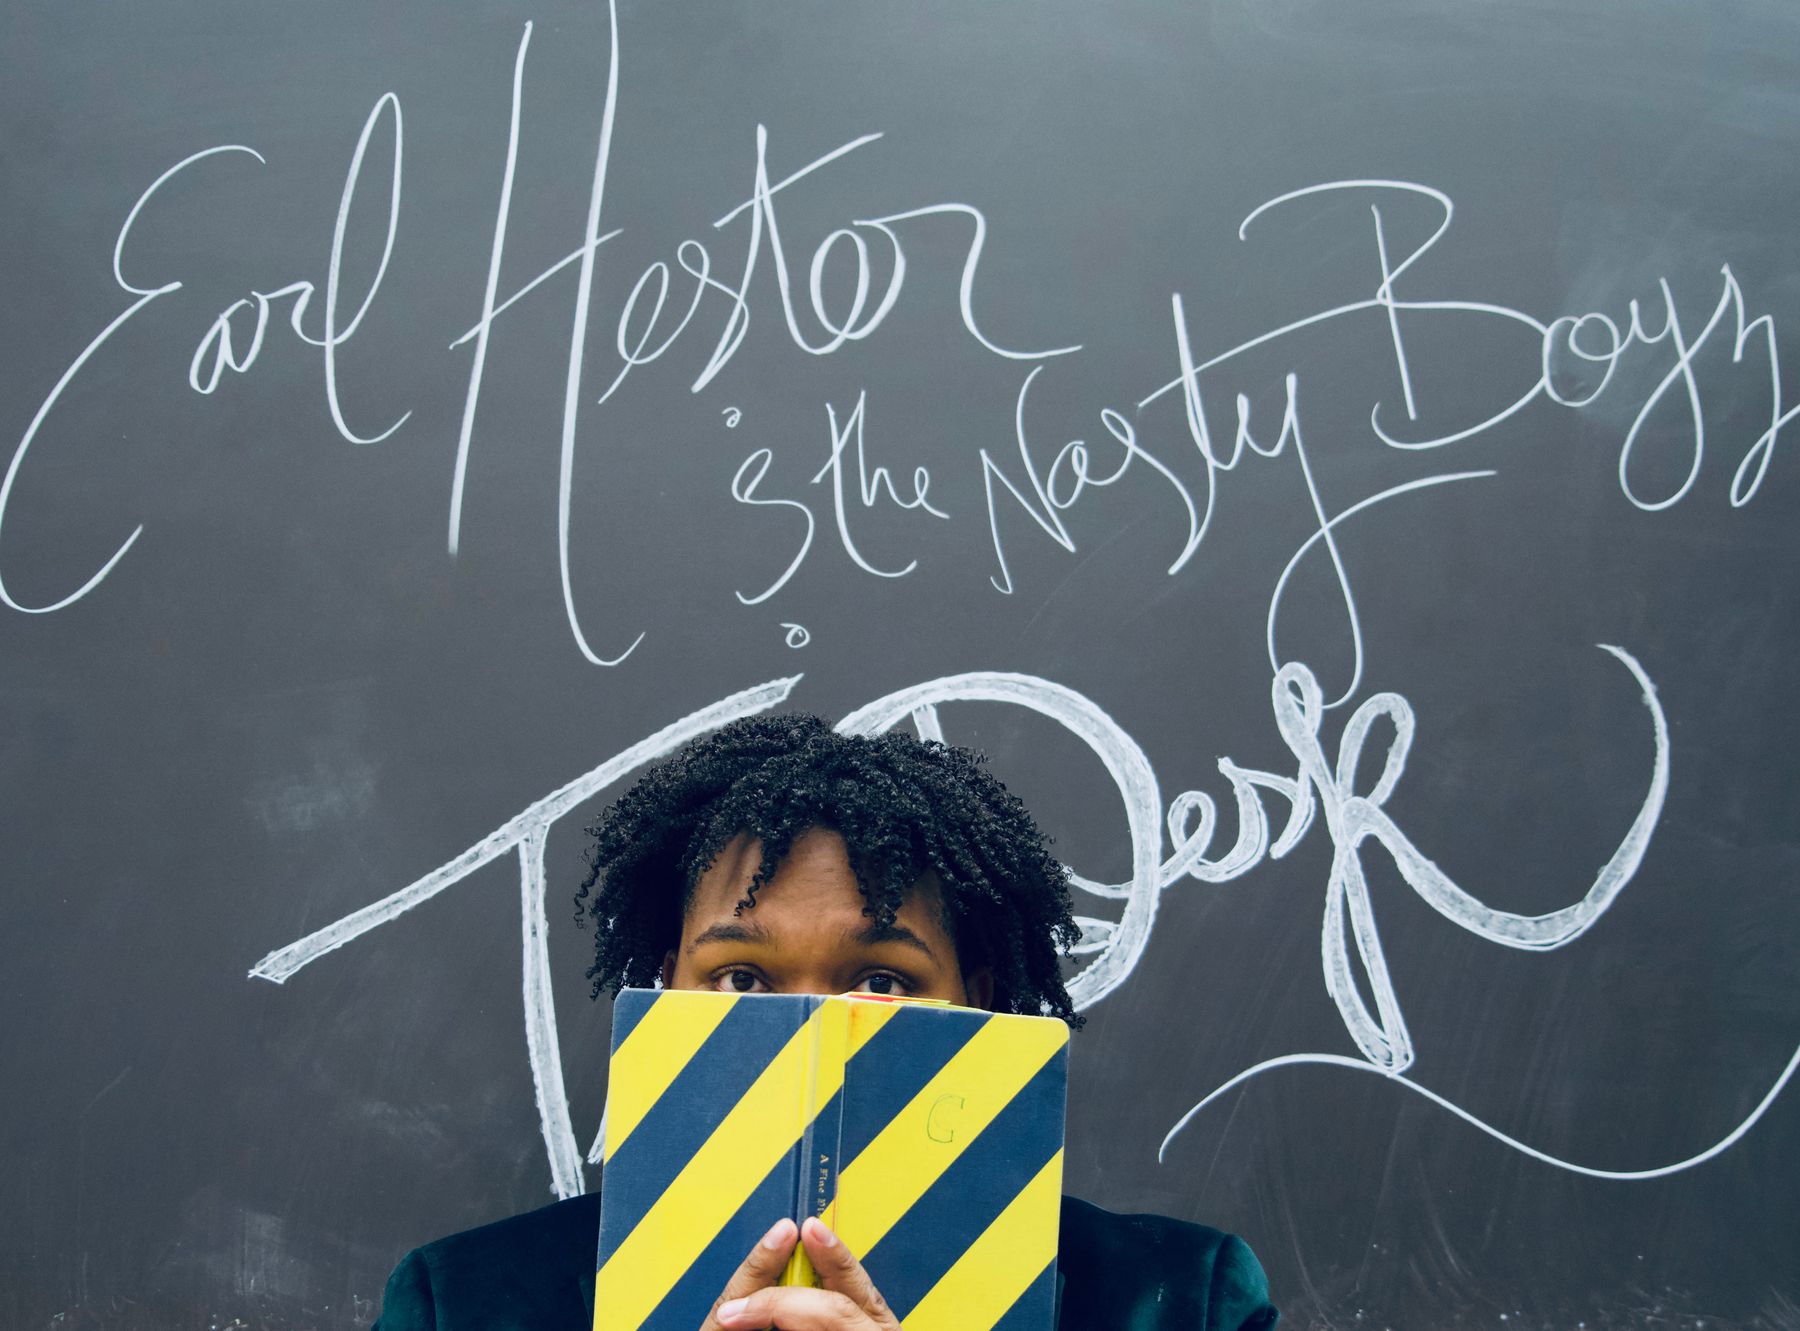 Earl Hestor
& the Nasty Boyz
T Desk
C
A Fine